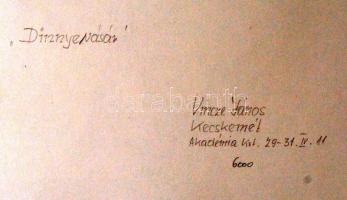 „Dinnyevásár”
Vincze János
Kecskemét
Akadémia krt. 29-31. IV. 11
6000
darabanth